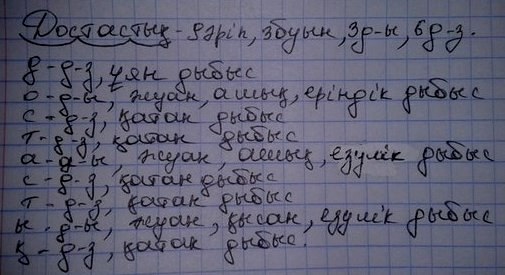 Достастық - 9әріп, 3буын, 3д-ы, 6д-з.
д - д-з, ұян дыбыс
о - д-ы, жуан, ашық, еріндік дыбыс
с - д-з, қатаң дыбыс
т - д-з, қатаң дыбыс
а - д-ы, жуан, ашық, езулік дыбыс
с - д-з, қатаң дыбыс
т - д-з, қатаң дыбыс
ы - д-ы, жуан, қысаң, езулік дыбыс
қ - д-з, қатаң дыбыс.